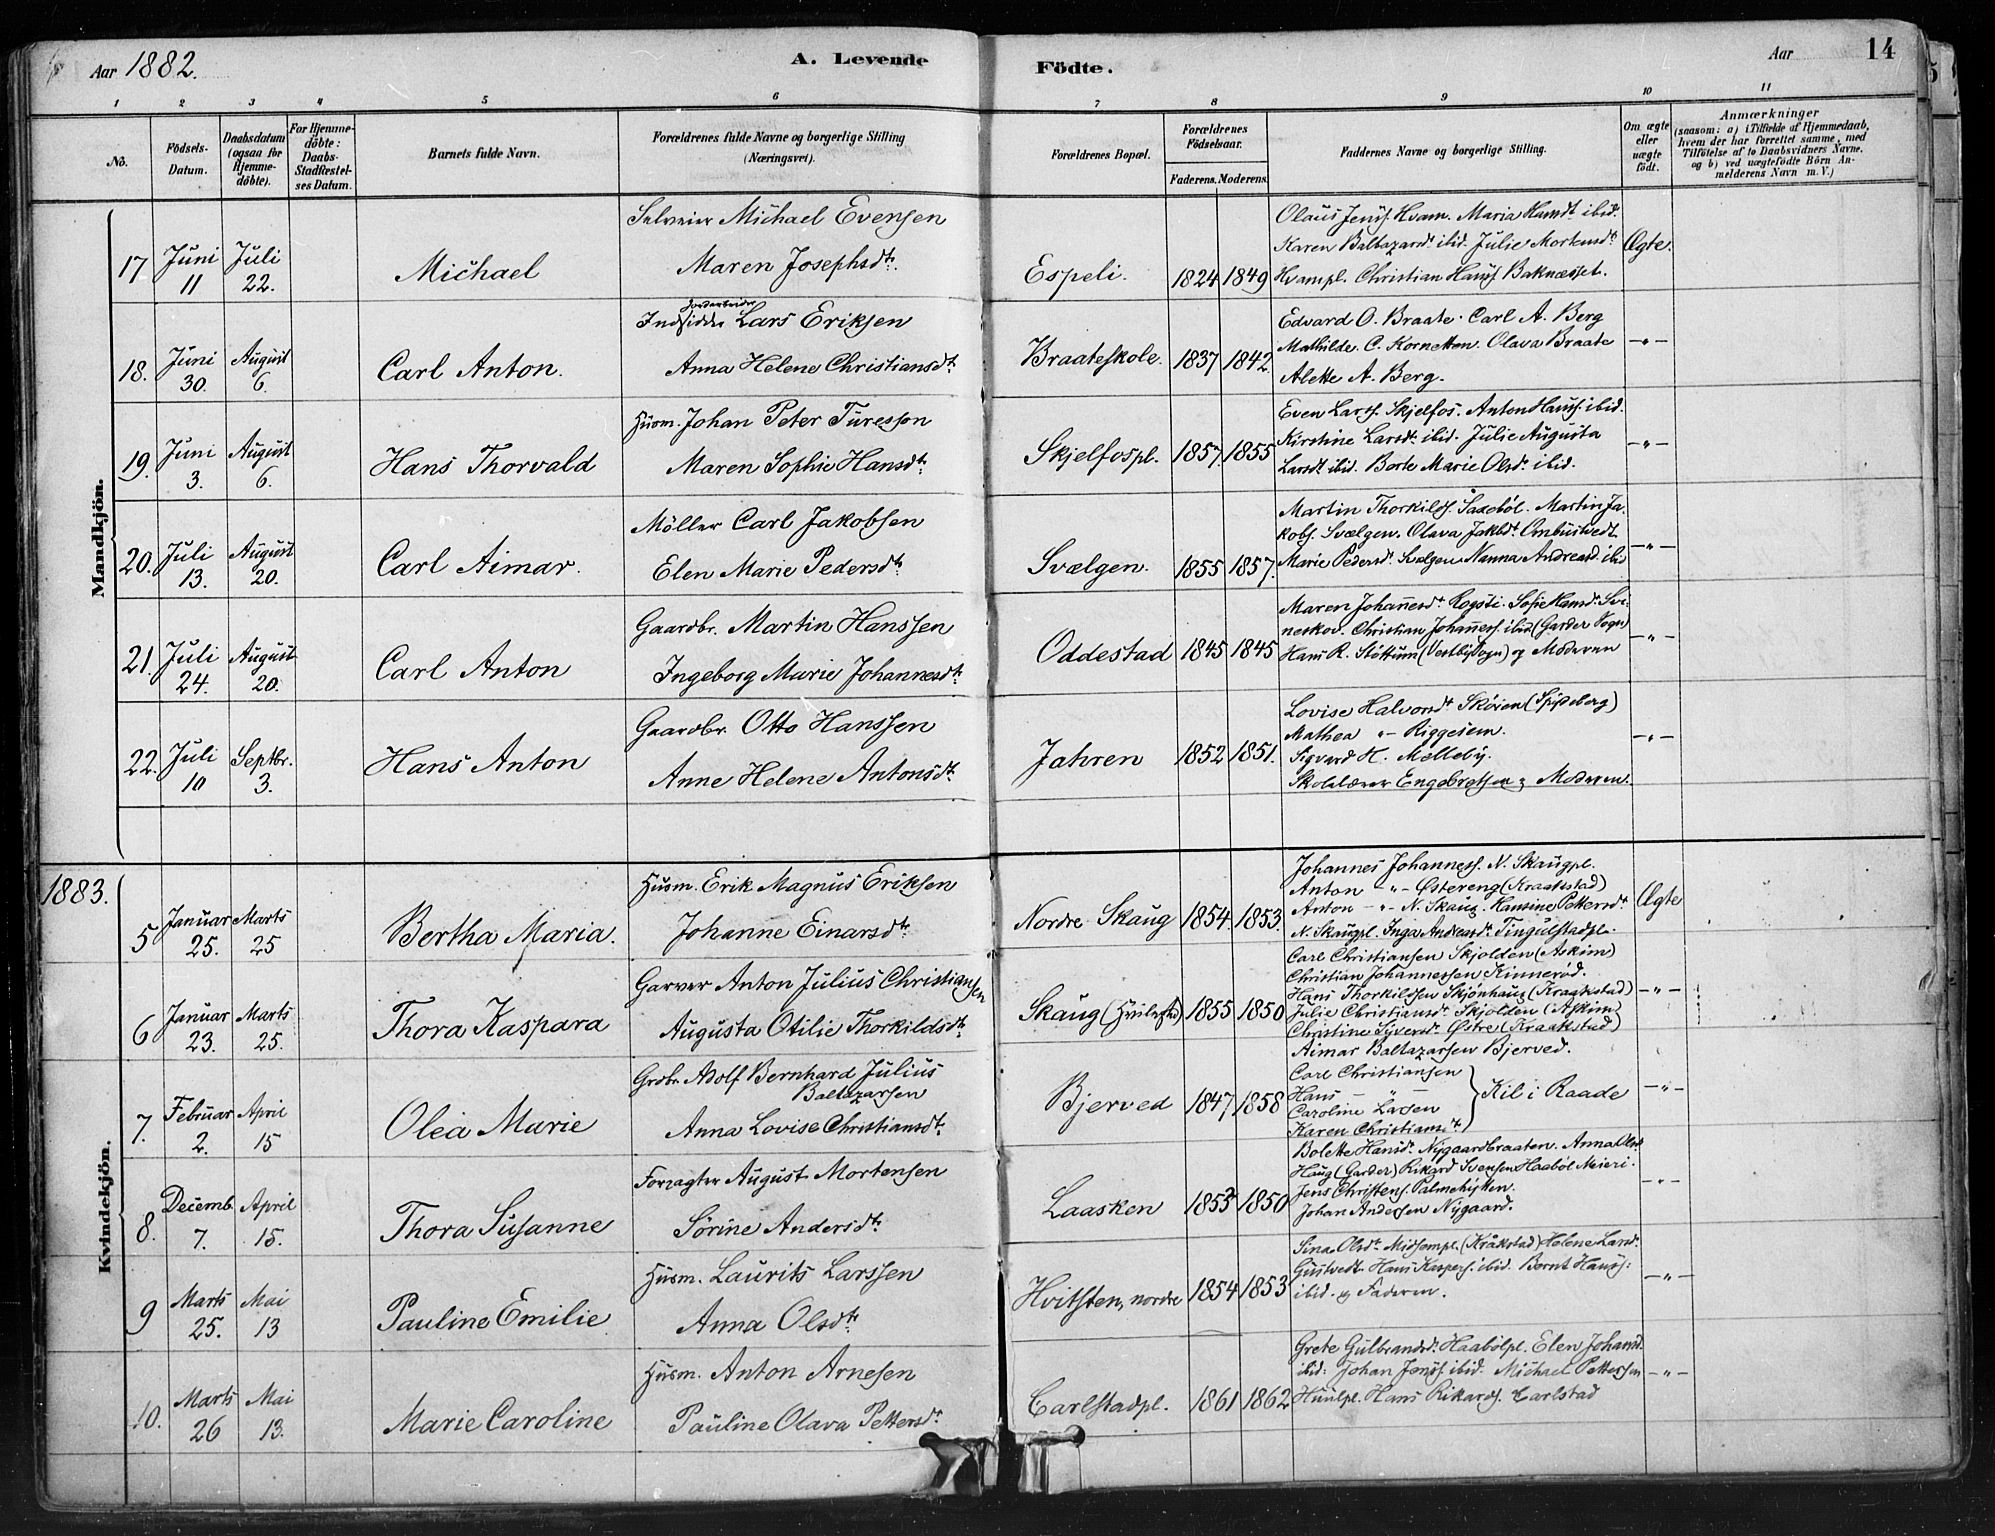 Aar 1882.
A. Levende Födte.
Aar
14
1 2 3 4 5 6 7 8 9 10 11
No.
Födsels-Datum.
Daabsdatum (ogsaa for Hjemme-döbte).
For Hjemme-döbte: Daabs-Stadfæstel-ses Datum.
Barnets fulde Navn.
Forældrenes fulde Navne og borgerlige Stilling (Næringsvei).
Forældrenes Bopæl.
Forældrenes Födselsaar.
Faderens. Moderens.
Faddernes Navne og borgerlige Stilling.
Om ægte eller uægte födt.
Anmærkninger
(saasom: a) i Tilfælde af Hjemmedaab, hvem der har forrettet samme, med Tilföielse af to Daabsvidners Navne. og b) ved uægtefödte Börn An-melderens Navn m. V.)
Mandkjön.
17 Juni 11 Juli 22. Michael
Selveier Michael Evensen
Maren Josephsdtr.
Espeli. 1824 1849
Olaus Jenss. Hvam. Maria Hansdt. ibid.
Karen Baltazardt. ibid. Julie Mortensdt.
Hvampl. Christian Hanss. Baknæsset.
Ægte.
18. Juni 30. August 6. Carl Anton.
Indsidder jordarbeider Lars Eriksen
Anna Helene Christiansdtr.
Braateskole. 1837 1842.
Edvard O. Braate. Carl A. Berg
Mathilde C. Kornetten. Olava Braate
Alette A. Berg.
—"—
19. Juni 3. August 6. Hans Thorvald
Husm. Johan Peter Turesson
Maren Sophie Hansdtr.
Skjelfospl. 1857. 1855
Even Larss. Skjelfos. Anton Hanss. ibid.
Kirstine Larsdt. ibid. Julie Augusta
Larsdt. ibid. Berte Marie Olsdt. ibid.
—"—
20. Juli 13. August 20. Carl Aimar.
Möller Carl Jakobsen
Elen Marie Pedersdtr.
Svælgen. 1855 1857.
Martin Thorkilds. Saxeböl. Martin Ja-
kobs. Svælgen. Olava Jakbdt. Ombustvedt
Marie Pedersdt. Svælgen Nanna Andreasd. ibid
—"—
21. Juli 24. August 20. Carl Anton
Gaardbr. Martin Hanssen
Ingeborg Marie Johannesdtr.
Oddestad 1845 1845
Maren Johannesdt. Rogsti. Sofie Hansdt. Svi-
neskov. Christian Johanness. ibid (Garder Sogn)
Hans R. Stöttum (Vestby Sogn) og Moderen
—"—
22. Juli 10 Septbr. 3. Hans Anton
Gaardbr. Otto Hanssen
Anne Helene Antonsdt.
Jahren 1852 1851.
Lovise Halvorsdt. Skóien (Spydeberg)
Mathea —"— Riggesiem.
Sigvard H. Melleby.
Skolelærer Engebretsen og Moderen.
—"—
1883.
Kvindekjön.
5 Januar 25. Marts 25 Bertha Maria.
Husm. Erik Magnus Eriksen
Johanne Einarsdtr.
Nordre Skaug 1854. 1853.
Johannes Johanness. N. Skaugpl.
Anton —"— Östereng (Kraakstad)
Anton —"— N. Skaug. Hansine Pettersdt.
N. Skaugpl. Inga Andreasdt. Tingulstadpl.
Ægte
6 Januar 23. Marts 25. Thora Kaspara
Garver Anton Julius Christiansen
Augusta Otilie Thorkildsdtr.
Skaug 1855 1850
Carl Christiansen Skjolden (Askim)
Christian Johannessen Kinneröd.
Hans Thorkildsen Skjönhaug (Kraakstad)
Julie Christiansdt. Skjolden (Askim)
Christine Syversdt. Östre (Kraakstad)
—"—
7. Februar 2. April 15 Olea Marie
Grdbr. Adolf Bernhard Julius
Baltazarsen
Anna Lovise Christiansdt.
Bjerved 1847 1858
Aimar Baltazarsen Bjerved.
Carl Christiansen
Hans —
Caroline Larsen
Karen Christiansdt. } Kil i Raade
—"—
8. Decemb. 7. April 15. Thora Susanne
Forpagter August Mortensen
Sörine Andersdtr.
Laasken 1853 1850
Bolette Hansdt. Nygaardbraaten. Anna Olsdt
Haug (Garder) Rikard Svensen Haaböl Meieri.
Jens Christens. Palmehytten.
Johan Andersen Nygaard.
—"—
9 Marts 25. Mai 13 Pauline Emilie
Husm. Laurits Larssen
Anna Olsdtr.
Hvitsten, nordre 1854 1853
Sina Olsdt. Midsempl. (Kråkstad) Helene Larsdt.
Gustvedt. Hans Kaspers. ibid. Bernt Hanss:
ibid. og Faderen.
—"—
10. Marts 26 Mai 13. Marie Caroline
Husm. Anton Arnesen
Pauline Olava Pettersdt.
Carlstadpl. 1861 1862
Grete Gulbrandsdt. Haabölpl. Elen Johansd.
ibid: Johan Jenss. ibid. Michael Pettersen
Huulpl. Hans Rikards. Carlstad
—"—